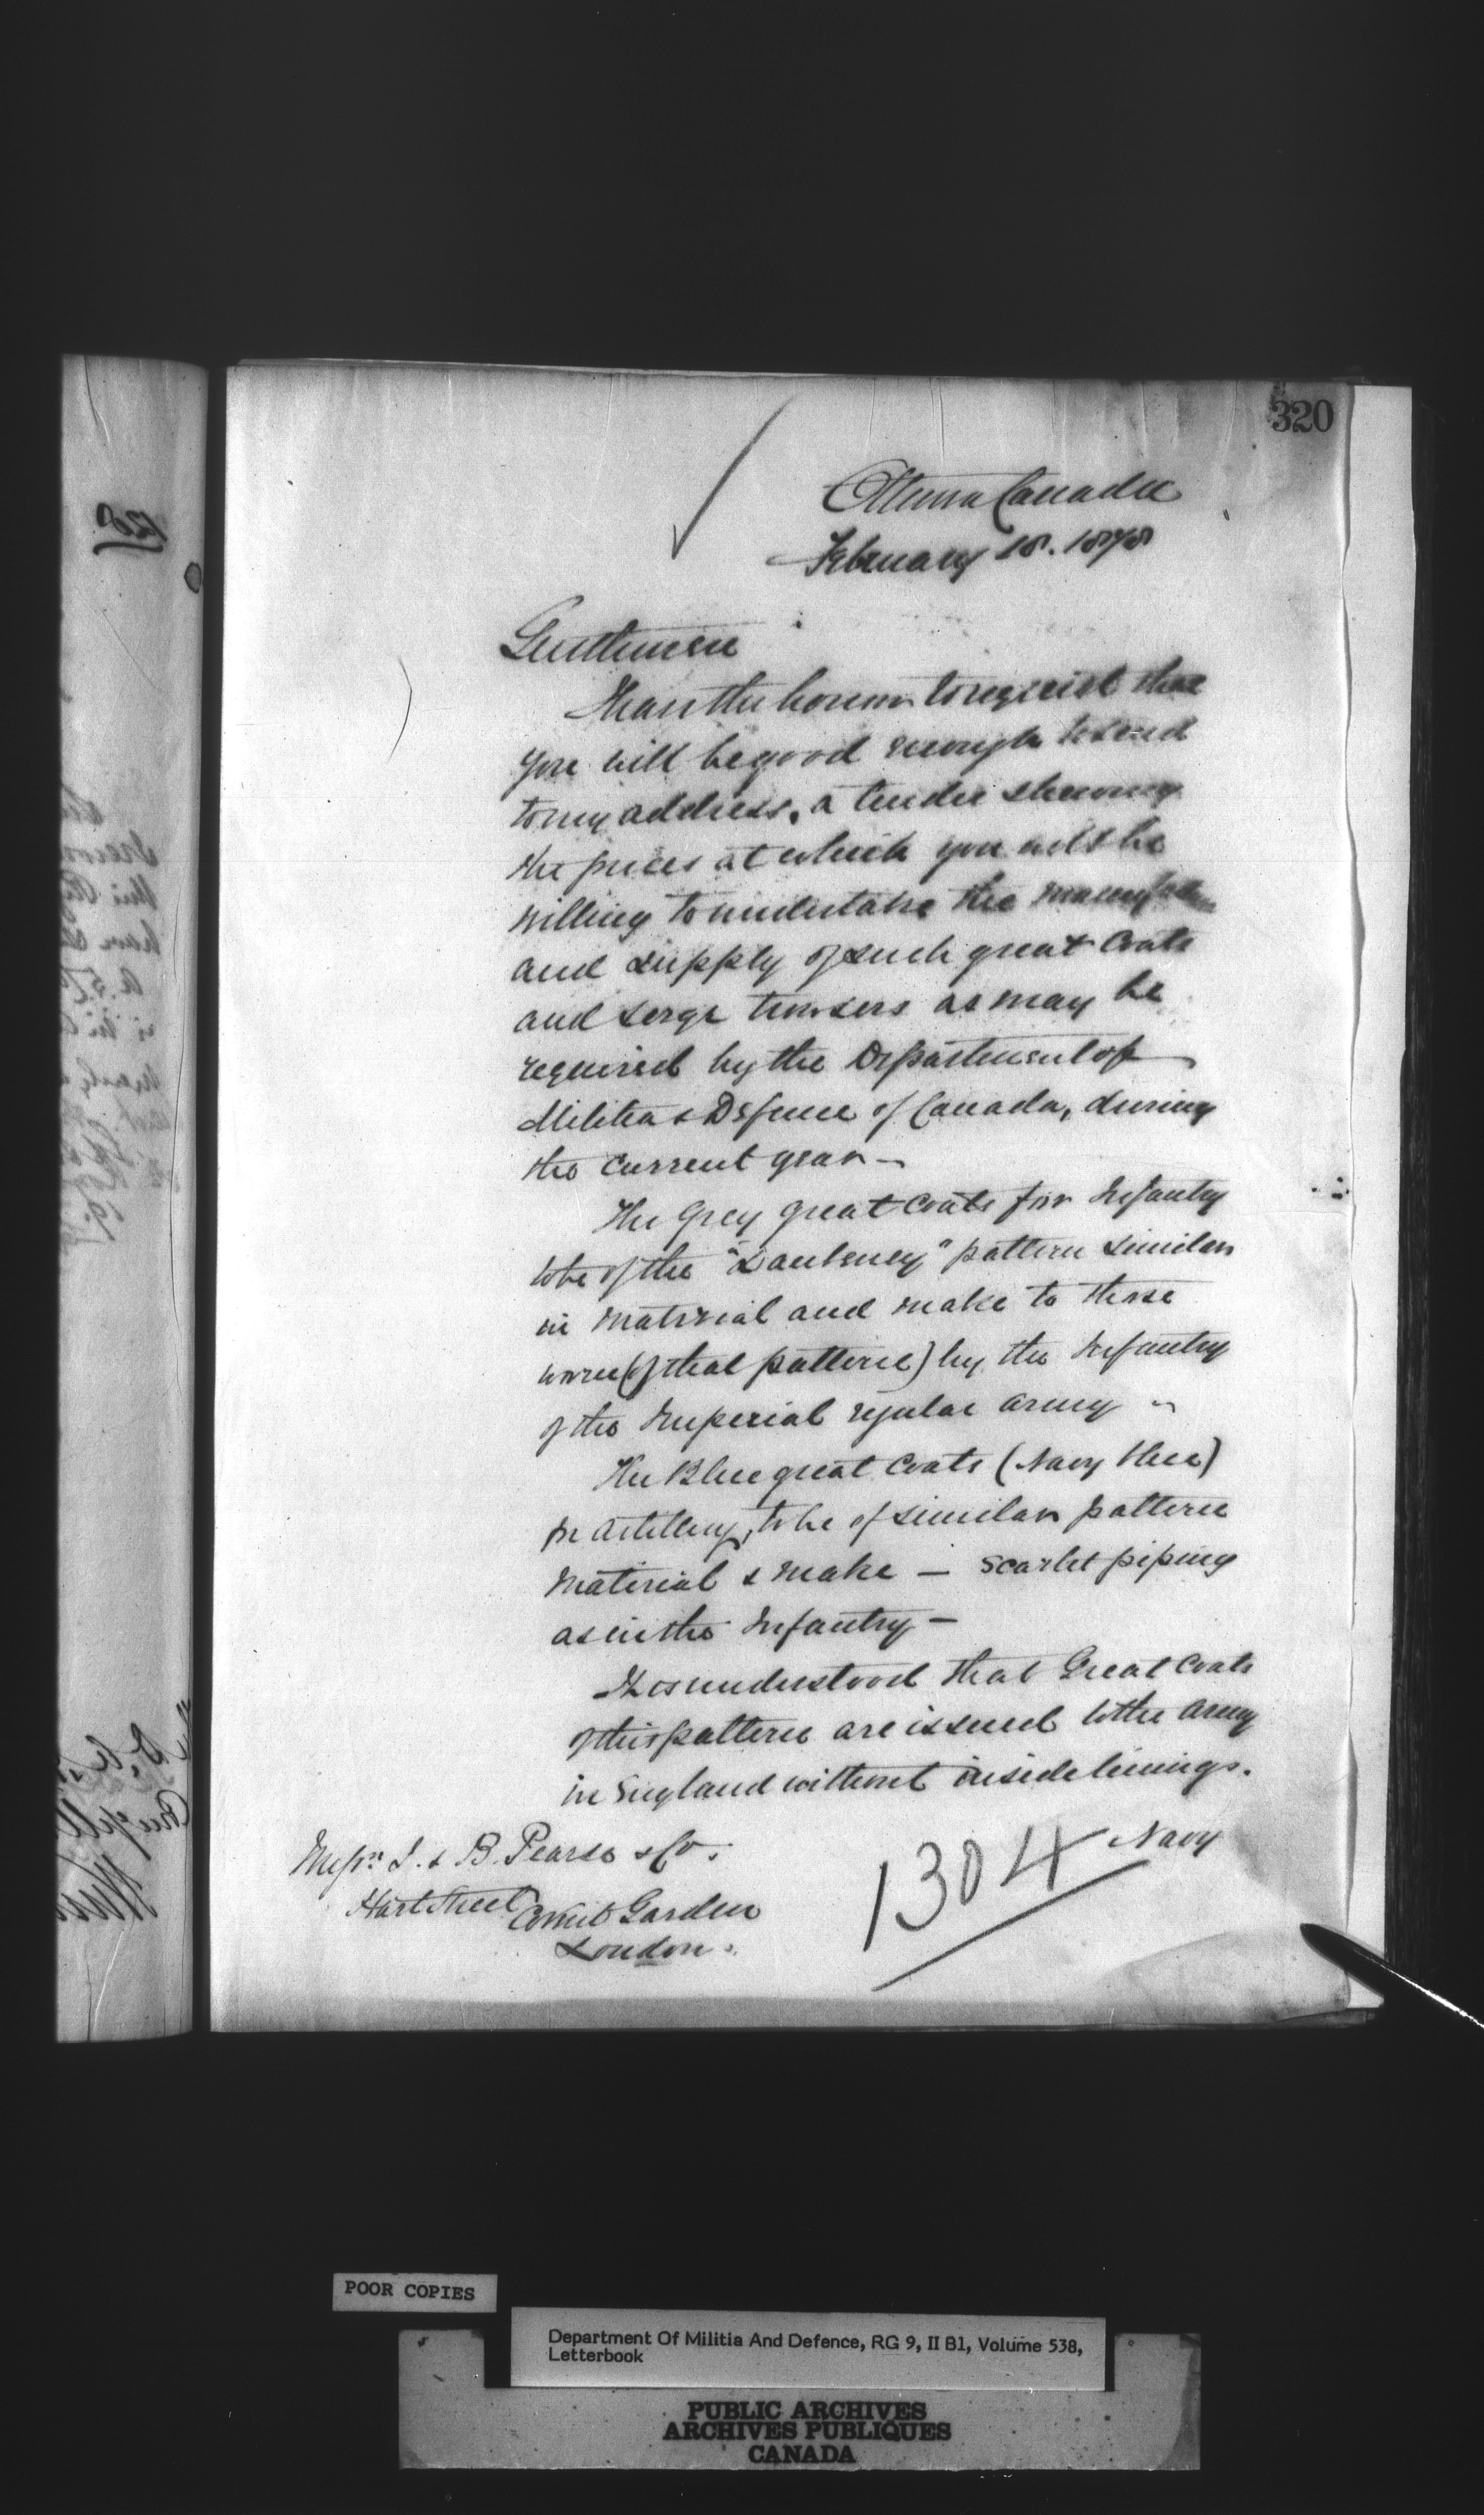 320
Ottawa Canada
February 18. 1878
Gentlemen
I have the honor to request that
you will be good enough to send
to my address, a tender shewing
the prices at which you will be
willing to undertake the manufacture
and supply of such great Coats
and serge trousers as may be
required by the Department of
Militia & Defence of Canada, during
the current year —
The Grey great Coats for Infantry
to be of the "Daubeney" pattern similar
in material and make to those
worn (of that pattern) by the Infantry
of the Imperial regular army
The Blue great Coats (Navy blue)
for Artillery, to be of similar pattern
material & make — scarlet piping
as in the Infantry —
It is understood that Great Coats
of this pattern are issued to the Army
in England without inside linings.
Navy
Messrs J. & B. Pearse & Co.
Hart Street Covent Garden
London.
1304
POOR COPIES
Department Of Militia And Defence, RG 9, II B1, Volume 538,
Letterbook
PUBLIC ARCHIVES
ARCHIVES PUBLIQUES
CANADA